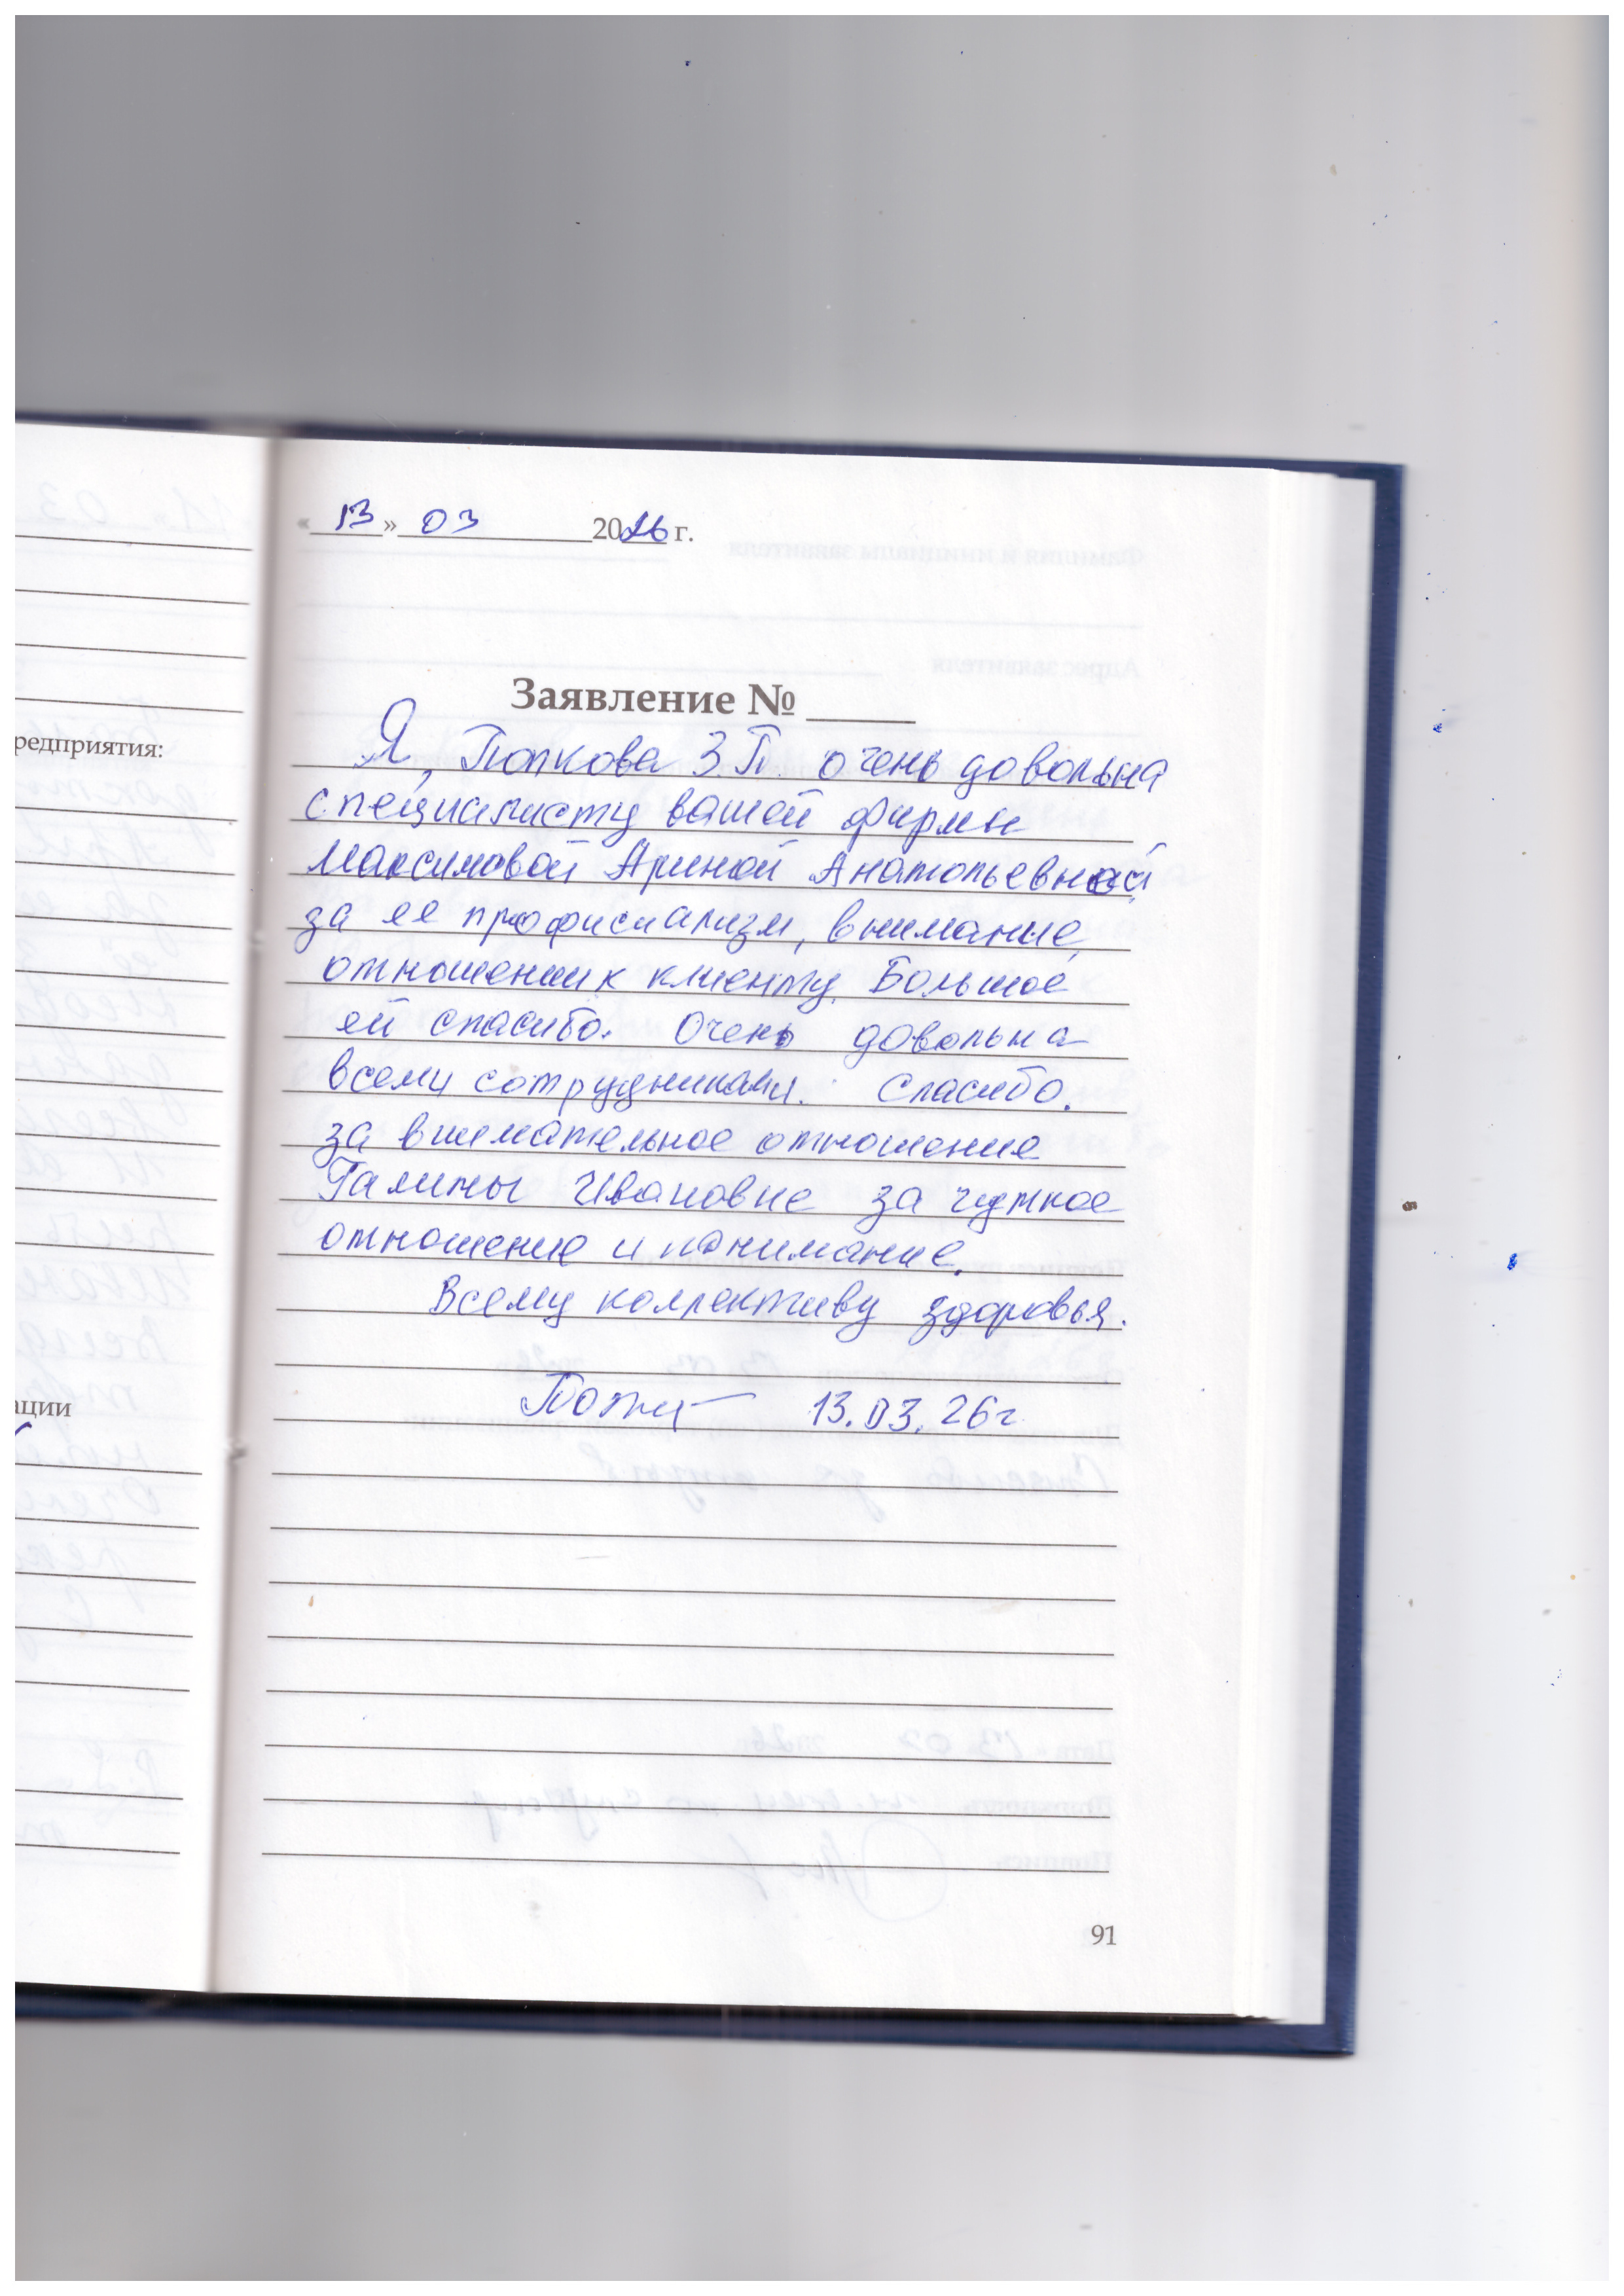 «13» 03 2026 г.
Заявление №
Я, Попкова З П. очень довольна
специалисту вашей фирмы
Максимовой Ариной Анатольевной
за ее профисиализм, внимание,
отношении к клиенту. Большое
ей спасибо. Очень довольна
всеми сотрудниками. Спасибо.
за внимательное отношение
Галины Ивановне за чуткое
отношение и понимание.
Всему коллективу здоровья.
13.03.26г
91
редприятия:
ации